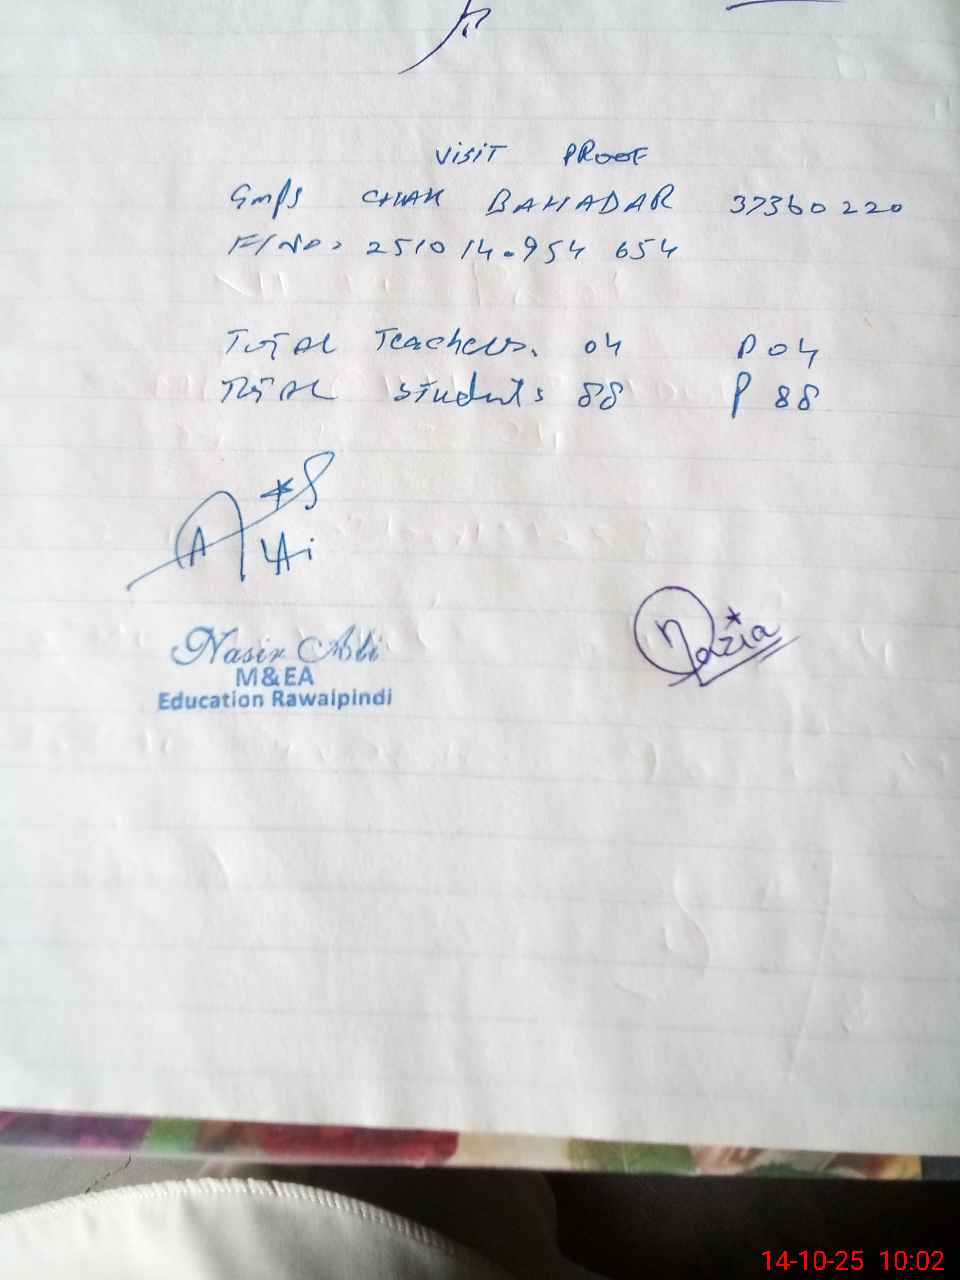 VISIT PROOF
GMPS CHAK BAHADAR 37360220
F/No. 251014-954 654
TOTAL Teachers. 04 P 04
TOTAL Students 88 P 88
Nasir Ali
M&EA
Education Rawalpindi
Nazia
14-10-25 10:02